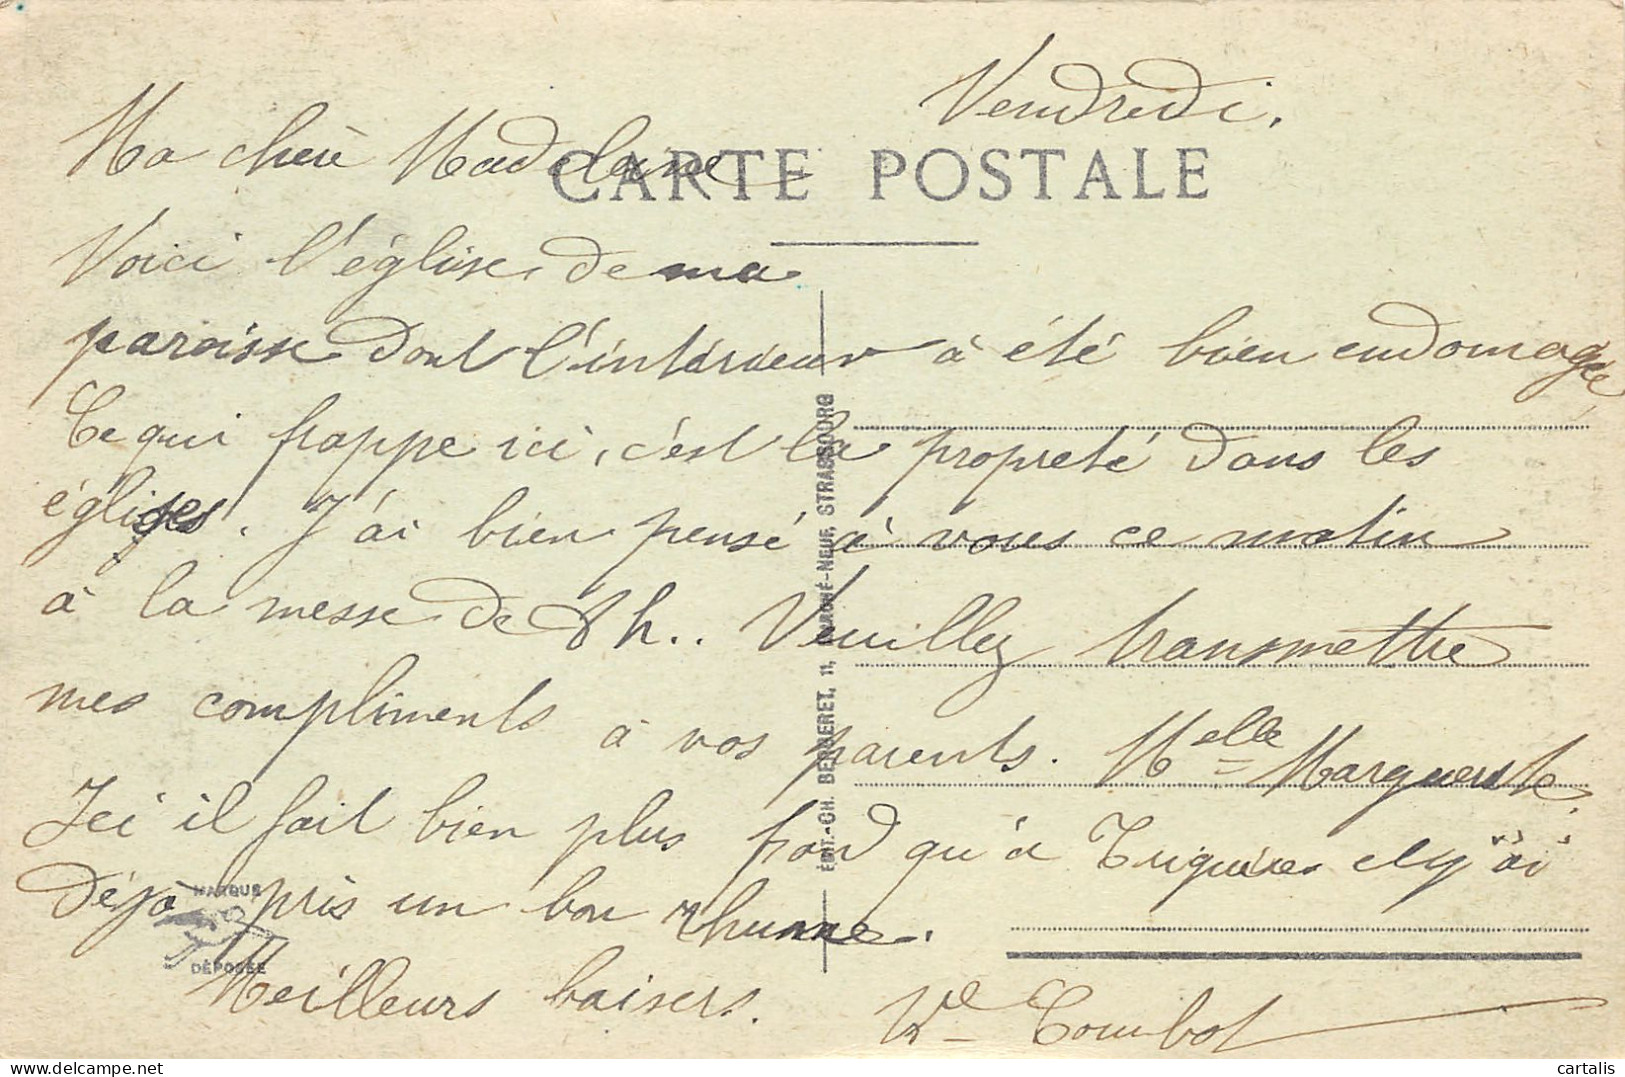 Vendredi.
Ma chère Madelaine
CARTE POSTALE
Voici l'église de ma
paroisse dont l'intérieur à été bien endomagée
Ce qui frappe ici, c'est la propreté dans les
églises. J'ai bien pensé à vous ce matin
à la messe de 8h.. Veuillez transmettre
mes compliments à vos parents. Melle Marguerite.
Ici il fait bien plus froid qu'à et j'ai
déjà pris un bon rhume.
Meilleurs baisers. Ve Combot
ÉDIT.-CH. BERGERET, 11, MAGNÉ-NEUF, STRASBOURG
MARQUE
DÉPOSÉE
delcampe.net
cartalis